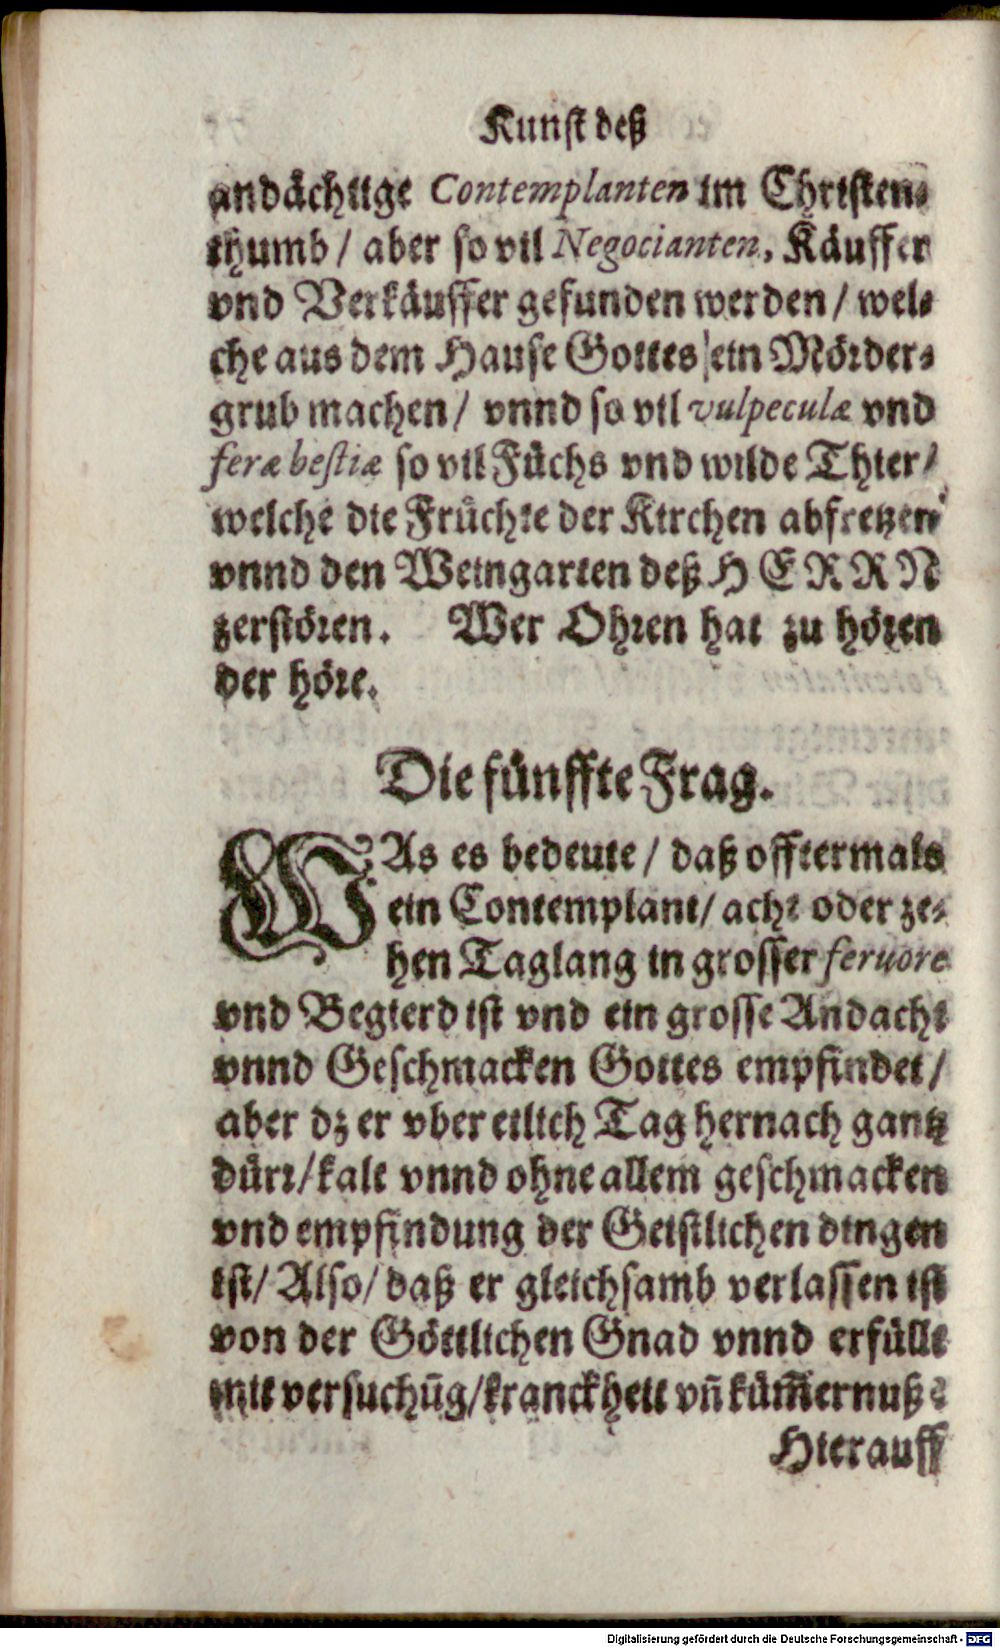 Kunst deß
andächtige Contemplanten im Christen⸗
thumb / aber so vil Negocianten, Käuffer
vnd Verkäuffer gefunden werden / wel⸗
che aus dem Hause Gottes ein Mörder⸗
grub machen / vnnd so vil vulpeculæ vnd
feræ bestiæ so vil Füchs vnd wilde Thier /
welche die Früchte der Kirchen abfretzen
vnnd den Weingarten deß HERRN
zerstören. Wer Ohren hat zu hören
der höre.
Die fünffte Frag.
WAs es bedeute / daß offtermals
ein Contemplant / acht oder ze⸗
hen Taglang in grosser feruore
vnd Begierd ist vnd ein grosse Andacht
vnnd Geschmacken Gottes empfindet /
aber dz er vber etlich Tag hernach gantz
dürr / kalt vnnd ohne allem geschmacken
vnd empfindung der Geistlichen dingen
ist / Also / daß er gleichsamb verlassen ist
von der Göttlichen Gnad vnnd erfüllt
mit versuchūg / kranckheit vn̄ küm̄ernuß?
Hierauff
Digitalisierung gefördert durch die Deutsche Forschungsgemeinschaft - DFG